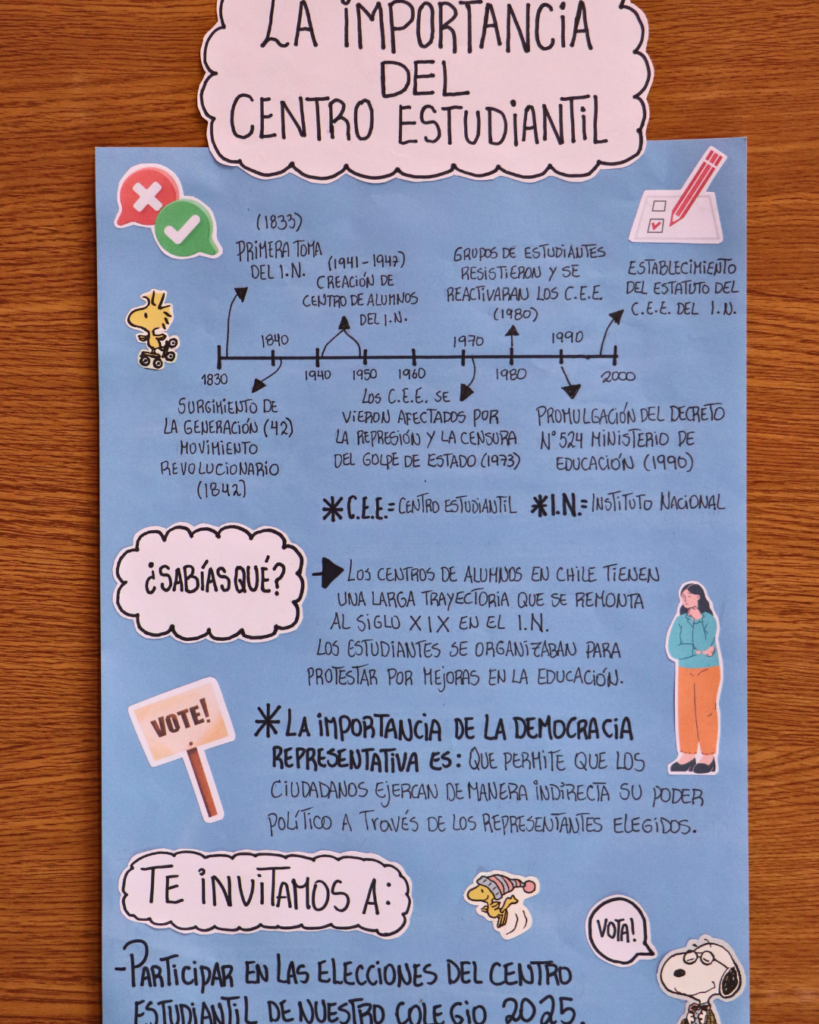 LA IMPORTANCIA
DEL
CENTRO ESTUDIANTIL
(1833)
PRIMERA TOMA
DEL I.N.
(1941-1947)
CREACIÓN DE
CENTRO DE ALUMNOS
DEL I.N.
GRUPOS DE ESTUDIANTES
RESISTIERON Y SE
REACTIVARAN LOS C.E.E.
(1980)
ESTABLECIMIENTO
DEL ESTATUTO DEL
C.E.E. DEL I.N.
1830
1840
1940
1950
1960
1970
1980
1990
2000
SURGIMIENTO DE
LA GENERACIÓN (42)
MOVIMIENTO
REVOLUCIONARIO
(1842)
LOS C.E.E. SE
VIERON AFECTADOS POR
LA REPRESIÓN Y LA CENSURA
DEL GOLPE DE ESTADO (1973)
PROMULGACIÓN DEL DECRETO
N°524 MINISTERIO DE
EDUCACIÓN (1990)
*C.E.E.= CENTRO ESTUDIANTIL *I.N.= INSTITUTO NACIONAL
¿SABÍAS QUÉ?
LOS CENTROS DE ALUMNOS EN CHILE TIENEN
UNA LARGA TRAYECTORIA QUE SE REMONTA
AL SIGLO XIX EN EL I.N.
LOS ESTUDIANTES SE ORGANIZABAN PARA
PROTESTAR POR MEJORAS EN LA EDUCACIÓN.
VOTE!
*LA IMPORTANCIA DE LA DEMOCRACIA
REPRESENTATIVA ES: QUE PERMITE QUE LOS
CIUDADANOS EJERCAN DE MANERA INDIRECTA SU PODER
POLÍTICO A TRAVÉS DE LOS REPRESENTANTES ELEGIDOS.
TE INVITAMOS A:
VOTA!
-PARTICIPAR EN LAS ELECCIONES DEL CENTRO
ESTUDIANTIL DE NUESTRO COLEGIO 2025.